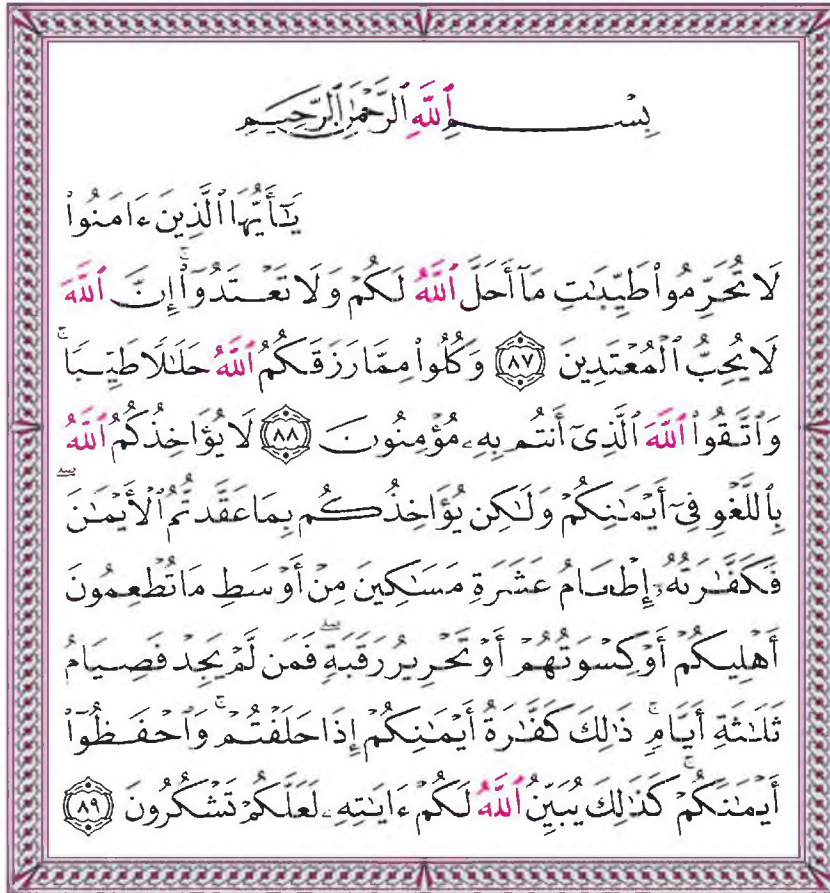 بِسْمِ ٱللَّهِ ٱلرَّحْمَٰنِ ٱلرَّحِيمِ
يَٰٓأَيُّهَا ٱلَّذِينَ ءَامَنُوا۟
لَا تُحَرِّمُوا۟ طَيِّبَٰتِ مَآ أَحَلَّ ٱللَّهُ لَكُمْ وَلَا تَعْتَدُوٓا۟ ۚ إِنَّ ٱللَّهَ
لَا يُحِبُّ ٱلْمُعْتَدِينَ ٨٧ وَكُلُوا۟ مِمَّا رَزَقَكُمُ ٱللَّهُ حَلَٰلًا طَيِّبًا ۚ
وَٱتَّقُوا۟ ٱللَّهَ ٱلَّذِىٓ أَنتُم بِهِۦ مُؤْمِنُونَ ٨٨ لَا يُؤَاخِذُكُمُ ٱللَّهُ
بِٱللَّغْوِ فِىٓ أَيْمَٰنِكُمْ وَلَٰكِن يُؤَاخِذُكُم بِمَا عَقَّدتُّمُ ٱلْأَيْمَٰنَ ۖ
فَكَفَّٰرَتُهُۥٓ إِطْعَامُ عَشَرَةِ مَسَٰكِينَ مِنْ أَوْسَطِ مَا تُطْعِمُونَ
أَهْلِيكُمْ أَوْ كِسْوَتُهُمْ أَوْ تَحْرِيرُ رَقَبَةٍ ۖ فَمَن لَّمْ يَجِدْ فَصِيَامُ
ثَلَٰثَةِ أَيَّامٍ ۚ ذَٰلِكَ كَفَّٰرَةُ أَيْمَٰنِكُمْ إِذَا حَلَفْتُمْ ۚ وَٱحْفَظُوٓا۟
أَيْمَٰنَكُمْ ۚ كَذَٰلِكَ يُبَيِّنُ ٱللَّهُ لَكُمْ ءَايَٰتِهِۦ لَعَلَّكُمْ تَشْكُرُونَ ٨٩